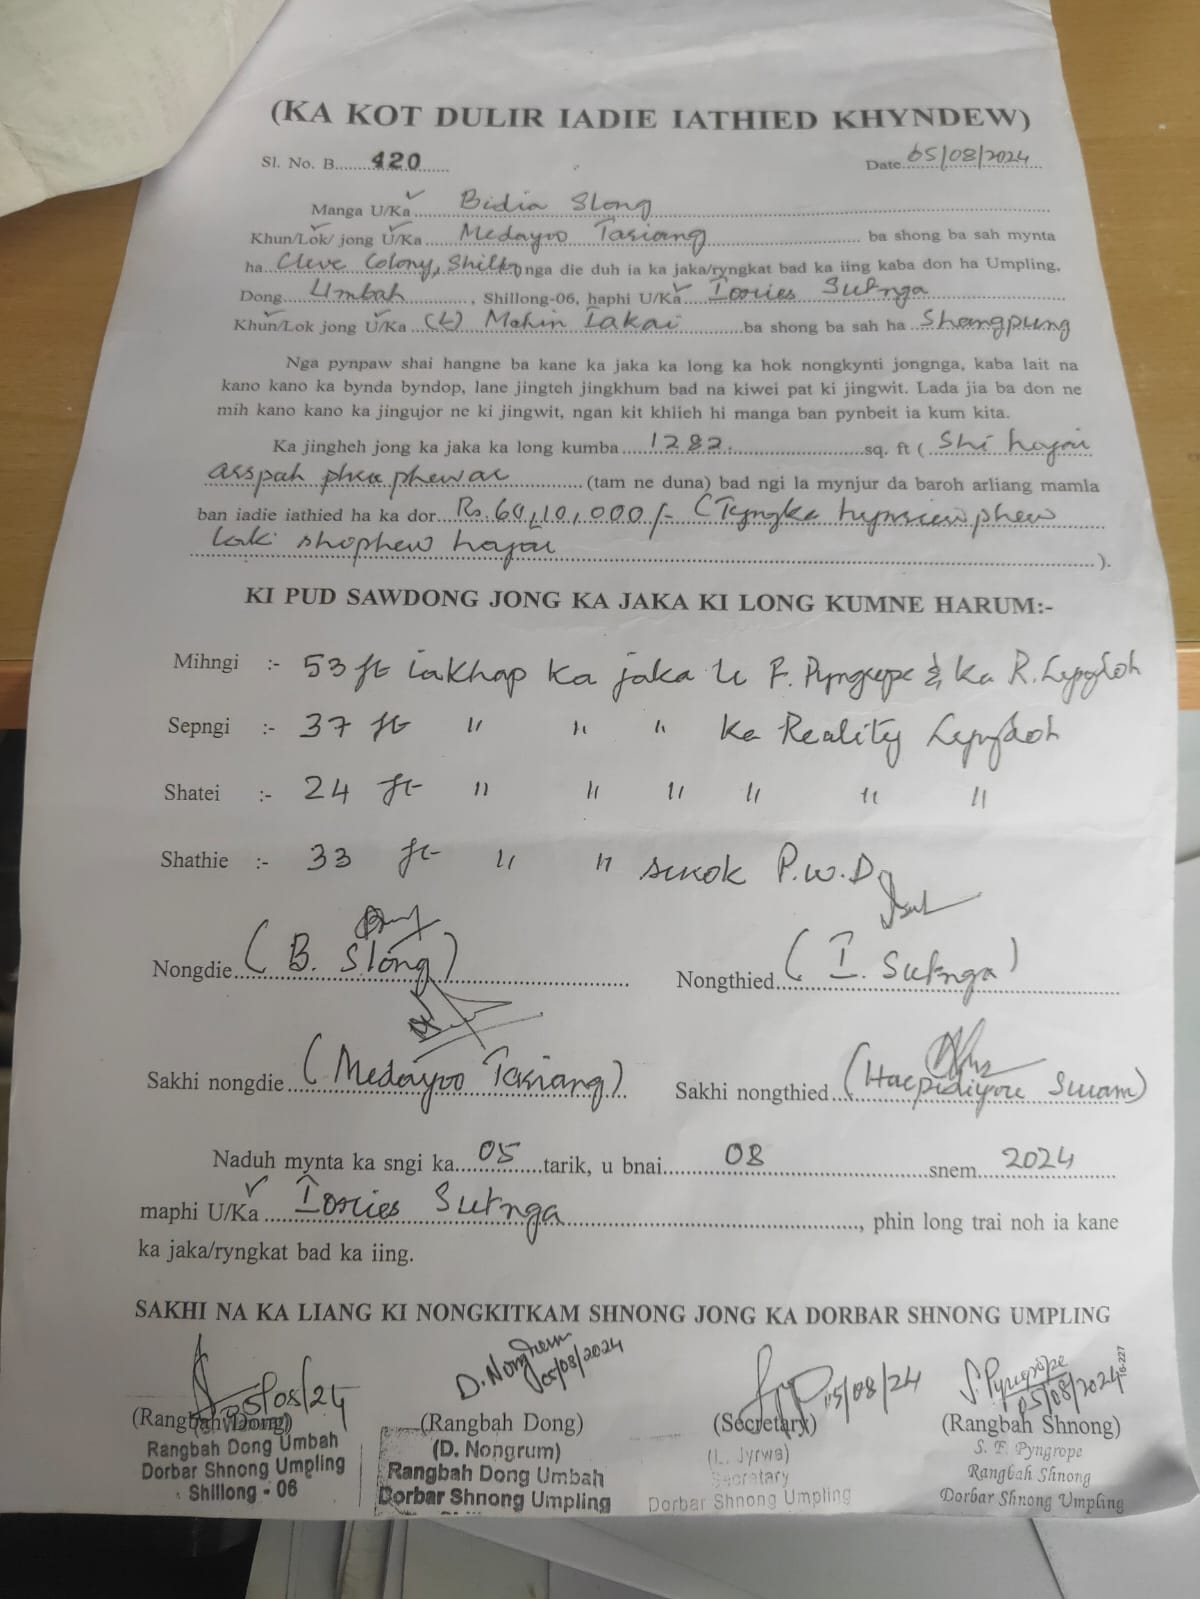 (KA KOT DULIR IADIE IATHIED KHYNDEW)
Sl. No. B........420...... Date 05/08/2024
Manga U/Ka Bidia Slong
Khun/Lok/ jong U/Ka Medayoo Tariang ba shong ba sah mynta
ha Cleve Colony, nga die duh ia ka jaka/ryngkat bad ka iing kaba don ha Umpling,
Dong Umbah, Shillong-06, haphi U/Ka Iories Sutnga
Khun/Lok jong U/Ka (L) Mohin Lakai ba shong ba sah ha Shangpung
Nga pynpaw shai hangne ba kane ka jaka ka long ka hok nongkynti jongnga, kaba lait na
kano kano ka bynda byndop, lane jingteh jingkhum bad na kiwei pat ki jingwit. Lada jia ba don ne
mih kano kano ka jingujor ne ki jingwit, ngan kit khlieh hi manga ban pynbeit ia kum kita.
Ka jingheh jong ka jaka ka long kumba 1282 sq. ft ( Shi hajar
arspah phra phewar (tam ne duna) bad ngi la mynjur da baroh arliang mamla
ban iadie iathied ha ka dor Rs. 60,10,000/- (Tyngka hynriewphew
lak shiphew hajar ).
KI PUD SAWDONG JONG KA JAKA KI LONG KUMNE HARUM:-
Mihngi :- 53 ft iakhap ka jaka u F. Pyngrope & ka R. Lyngdoh
Sepngi :- 37 ft " " " ka Reality Lyngdoh
Shatei :- 24 ft " " " " " "
Shathie :- 33 ft " " surok P.W.D
Nongdie (B. Slong) Nongthied (I. Sutnga)
Sakhi nongdie (Medayoo Tariang) Sakhi nongthied (Swam)
Naduh mynta ka sngi ka 05 tarik, u bnai 08 snem 2024
maphi U/Ka Iories Sutnga, phin long trai noh ia kane
ka jaka/ryngkat bad ka iing.
SAKHI NA KA LIANG KI NONGKITKAM SHNONG JONG KA DORBAR SHNONG UMPLING
05/08/24 D. Nongrum 05/08/2024 05/08/24 S. Pyngrope 05/08/2024
(Rangbah Dong) (Rangbah Dong) (Secretary) (Rangbah Shnong)
Rangbah Dong Umbah (D. Nongrum) (L. Jyrwa) S. F. Pyngrope
Dorbar Shnong Umpling Rangbah Dong Umbah Secretary Rangbah Shnong
Shillong - 06 Dorbar Shnong Umpling Dorbar Shnong Umpling Dorbar Shnong Umpling